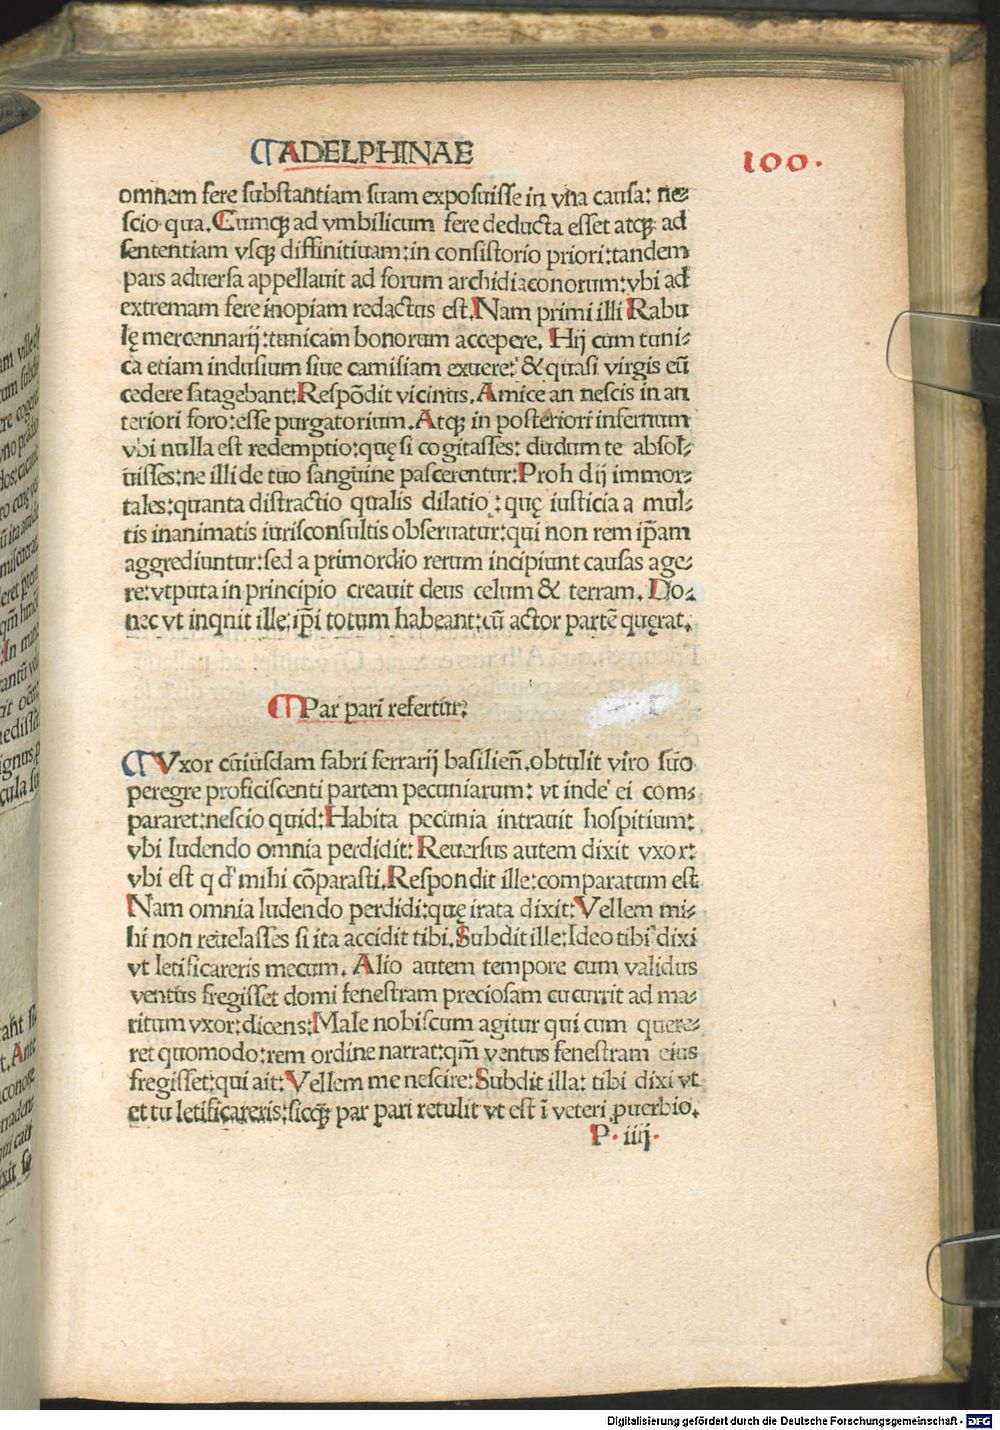 ADELPHINAE
100.
omnem fere substantiam suam exposuisse in vna causa: ne⸗
scio qua. Cumqꝫ ad vmbilicum fere deducta esset atqꝫ ad
sententiam vsqꝫ diffinitiuam: in consistorio priori: tandem
pars aduersa appellauit ad forum archidiaconorum: vbi ad
extremam fere inopiam redactus est. Nam primi illi Rabu
lę mercennarij: tunicam bonorum accepere. Hij cum tuni⸗
ca etiam indusium siue camisiam exuere: & quasi virgis eū
cedere satagebant: Respōdit vicinus. Amice an nescis in an
teriori foro: esse purgatorium. Atqꝫ in posteriori infernum
vbi nulla est redemptio: quę si cogitasses: dudum te absol⸗
uisses: ne illi de tuo sanguine pascerentur: Proh dij immor⸗
tales: quanta distractio qualis dilatio: quę iusticia a mul⸗
tis inanimatis iurisconsultis obseruatur: qui non rem ip̄am
aggrediuntur: sed a primordio rerum incipiunt causas age⸗
re: vtputa in principio creauit deus celum & terram. Do⸗
nec vt inqnit ille: ip̄i totum habeant: cū actor partē quęrat.
Par pari refertur:
Vxor cuiusdam fabri ferrarij basilien̄. obtulit viro suo
peregre proficiscenti partem pecuniarum: vt inde ei com⸗
pararet: nescio quid: Habita pecunia intrauit hospitium:
vbi ludendo omnia perdidit: Reuersus autem dixit vxor:
vbi est q d' mihi cōparasti. Respondit ille: comparatum est
Nam omnia ludendo perdidi: quę irata dixit: Vellem mi⸗
hi non reuelasses si ita accidit tibi. Subdit ille: Ideo tibi dixi
vt letificareris mecum. Alio autem tempore cum validus
ventus fregisset domi fenestram preciosam cucurrit ad ma⸗
ritum vxor: dicens: Male nobiscum agitur qui cum quere⸗
ret quomodo: rem ordine narrat: qm̄ ventus fenestram eius
fregisset: qui ait: Vellem me nescire: Subdit illa: tibi dixi vt
et tu letificareris: sicqꝫ par pari retulit vt est ī veteri ꝓuerbio.
P. iiij.
Digitalisierung gefördert durch die Deutsche Forschungsgemeinschaft - DFG